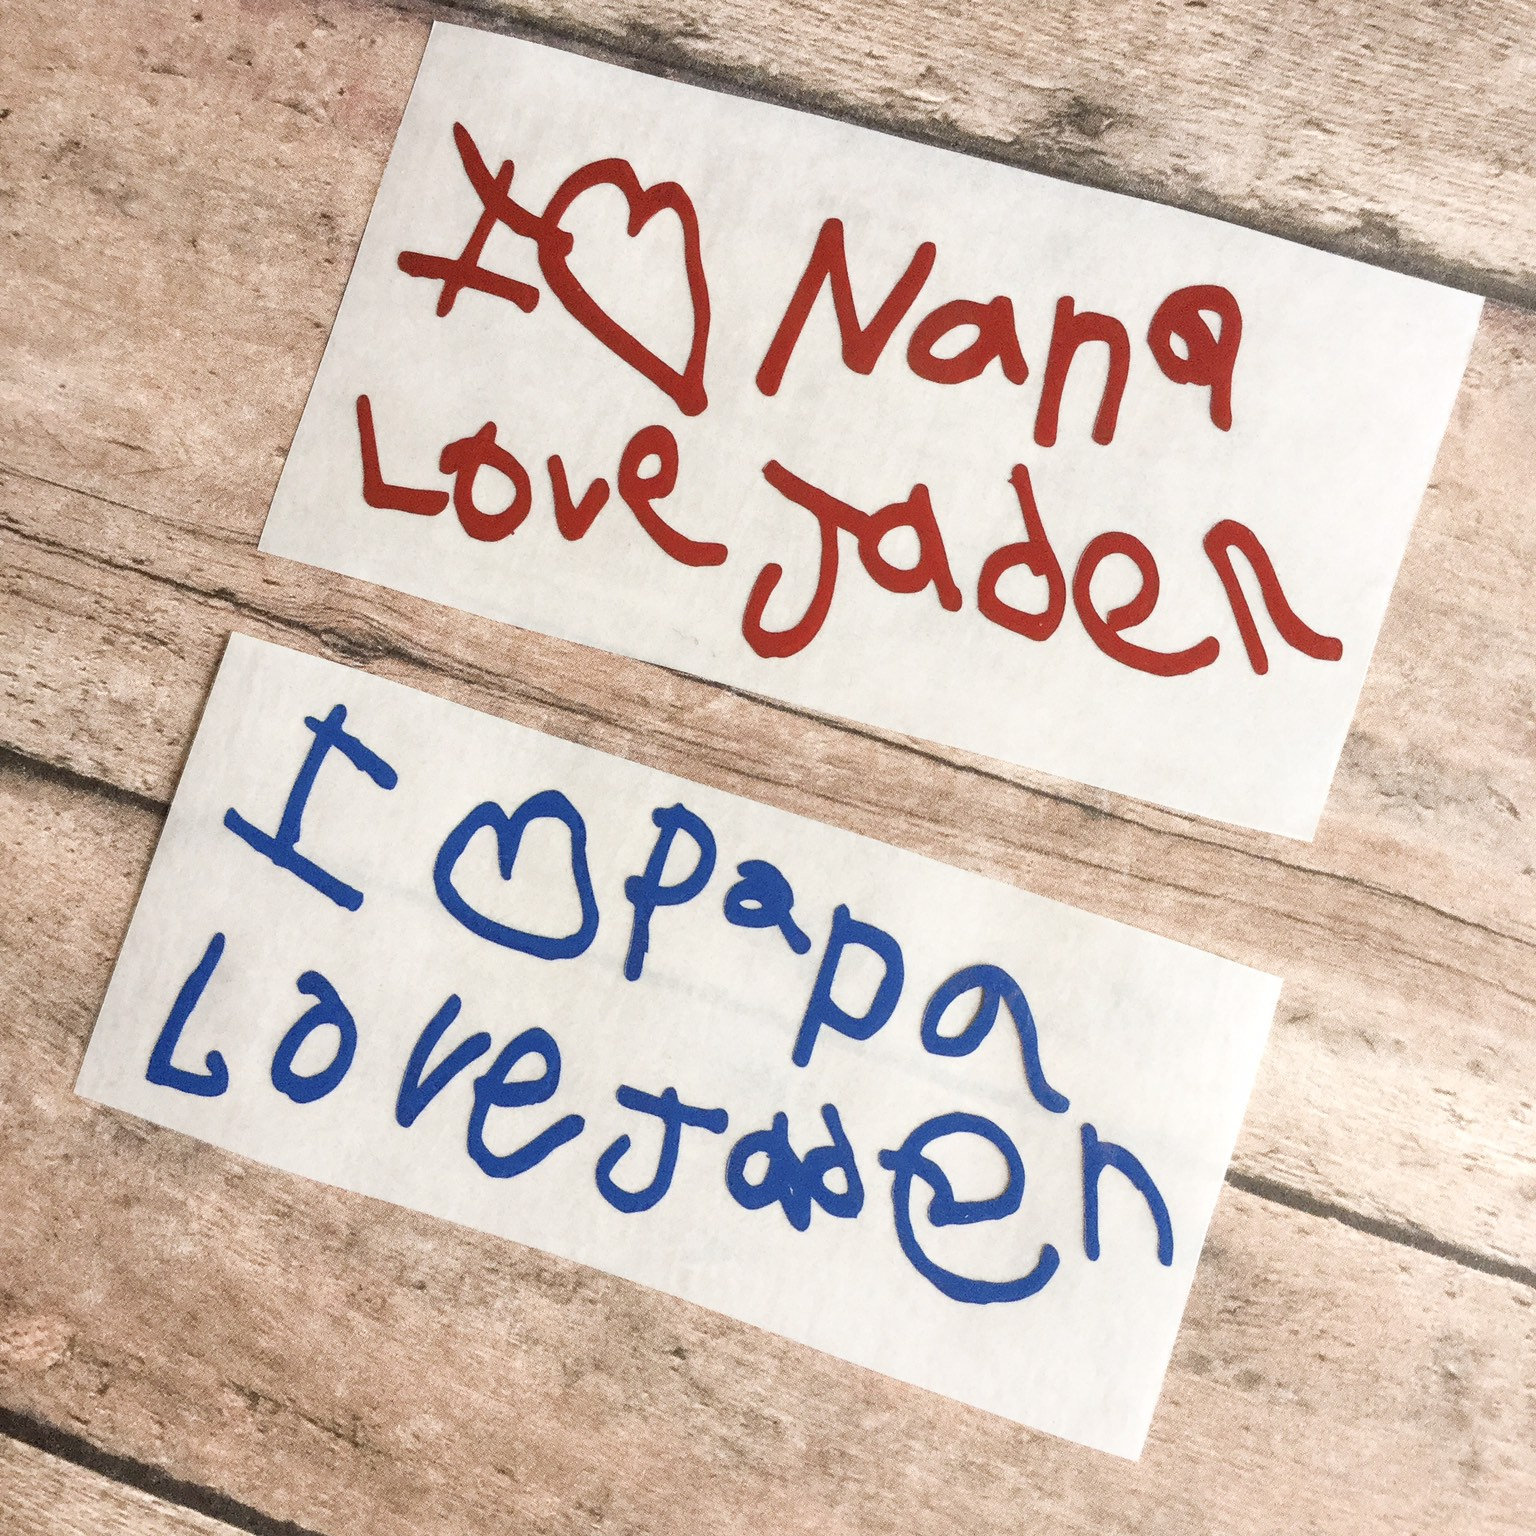 I ♡ Nana
Love Jaden
I ♡ papa
Love Jaden